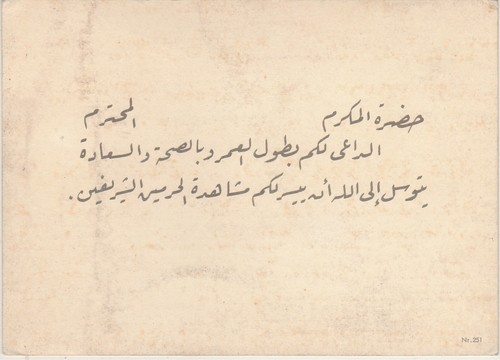 حضرة المكرم المحترم
الداعى لكم بطول العمر وبالصحة والسعادة
يتوسل إلى الله أن ييسر لكم مشاهدة الحرمين الشريفين .
Nr. 251